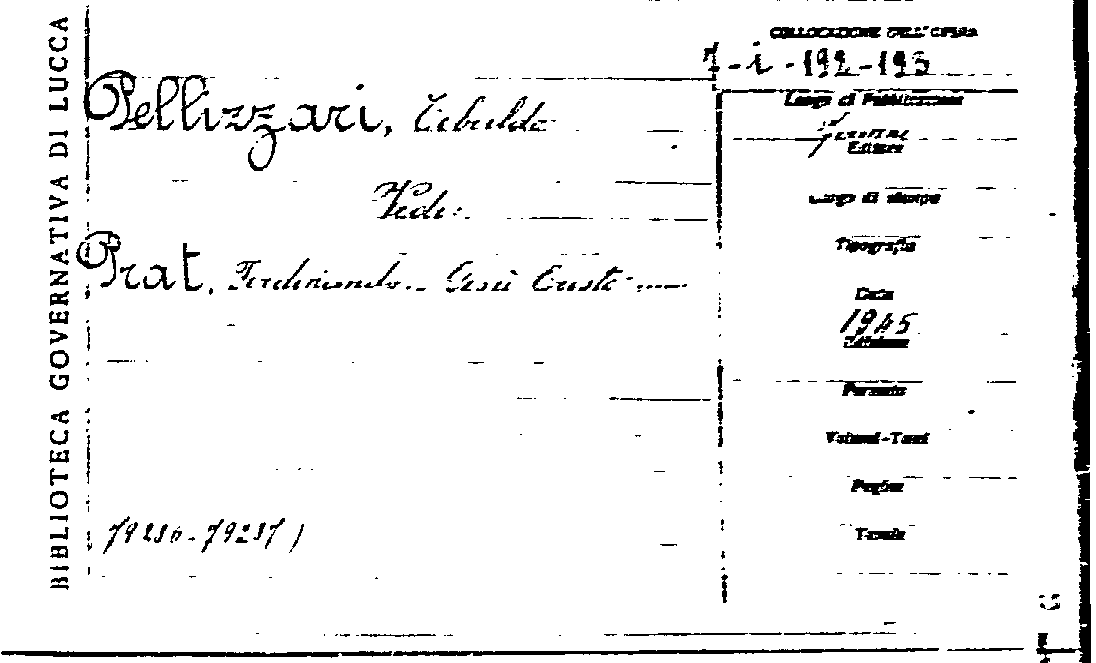 BIBLIOTECA GOVERNATIVA DI LUCCA
COLLOCAZIONE DELL'OPERA
Pellizzari, Tebaldo
Luogo di Pubblicazione
Editore
Vedi:
Luogo di stampa
Tipografia
Prat, Ferdinando.. Gesù Cristo
Data
1945
Edizione
Formato
Volumi-Tomi
Pagine
Tavole